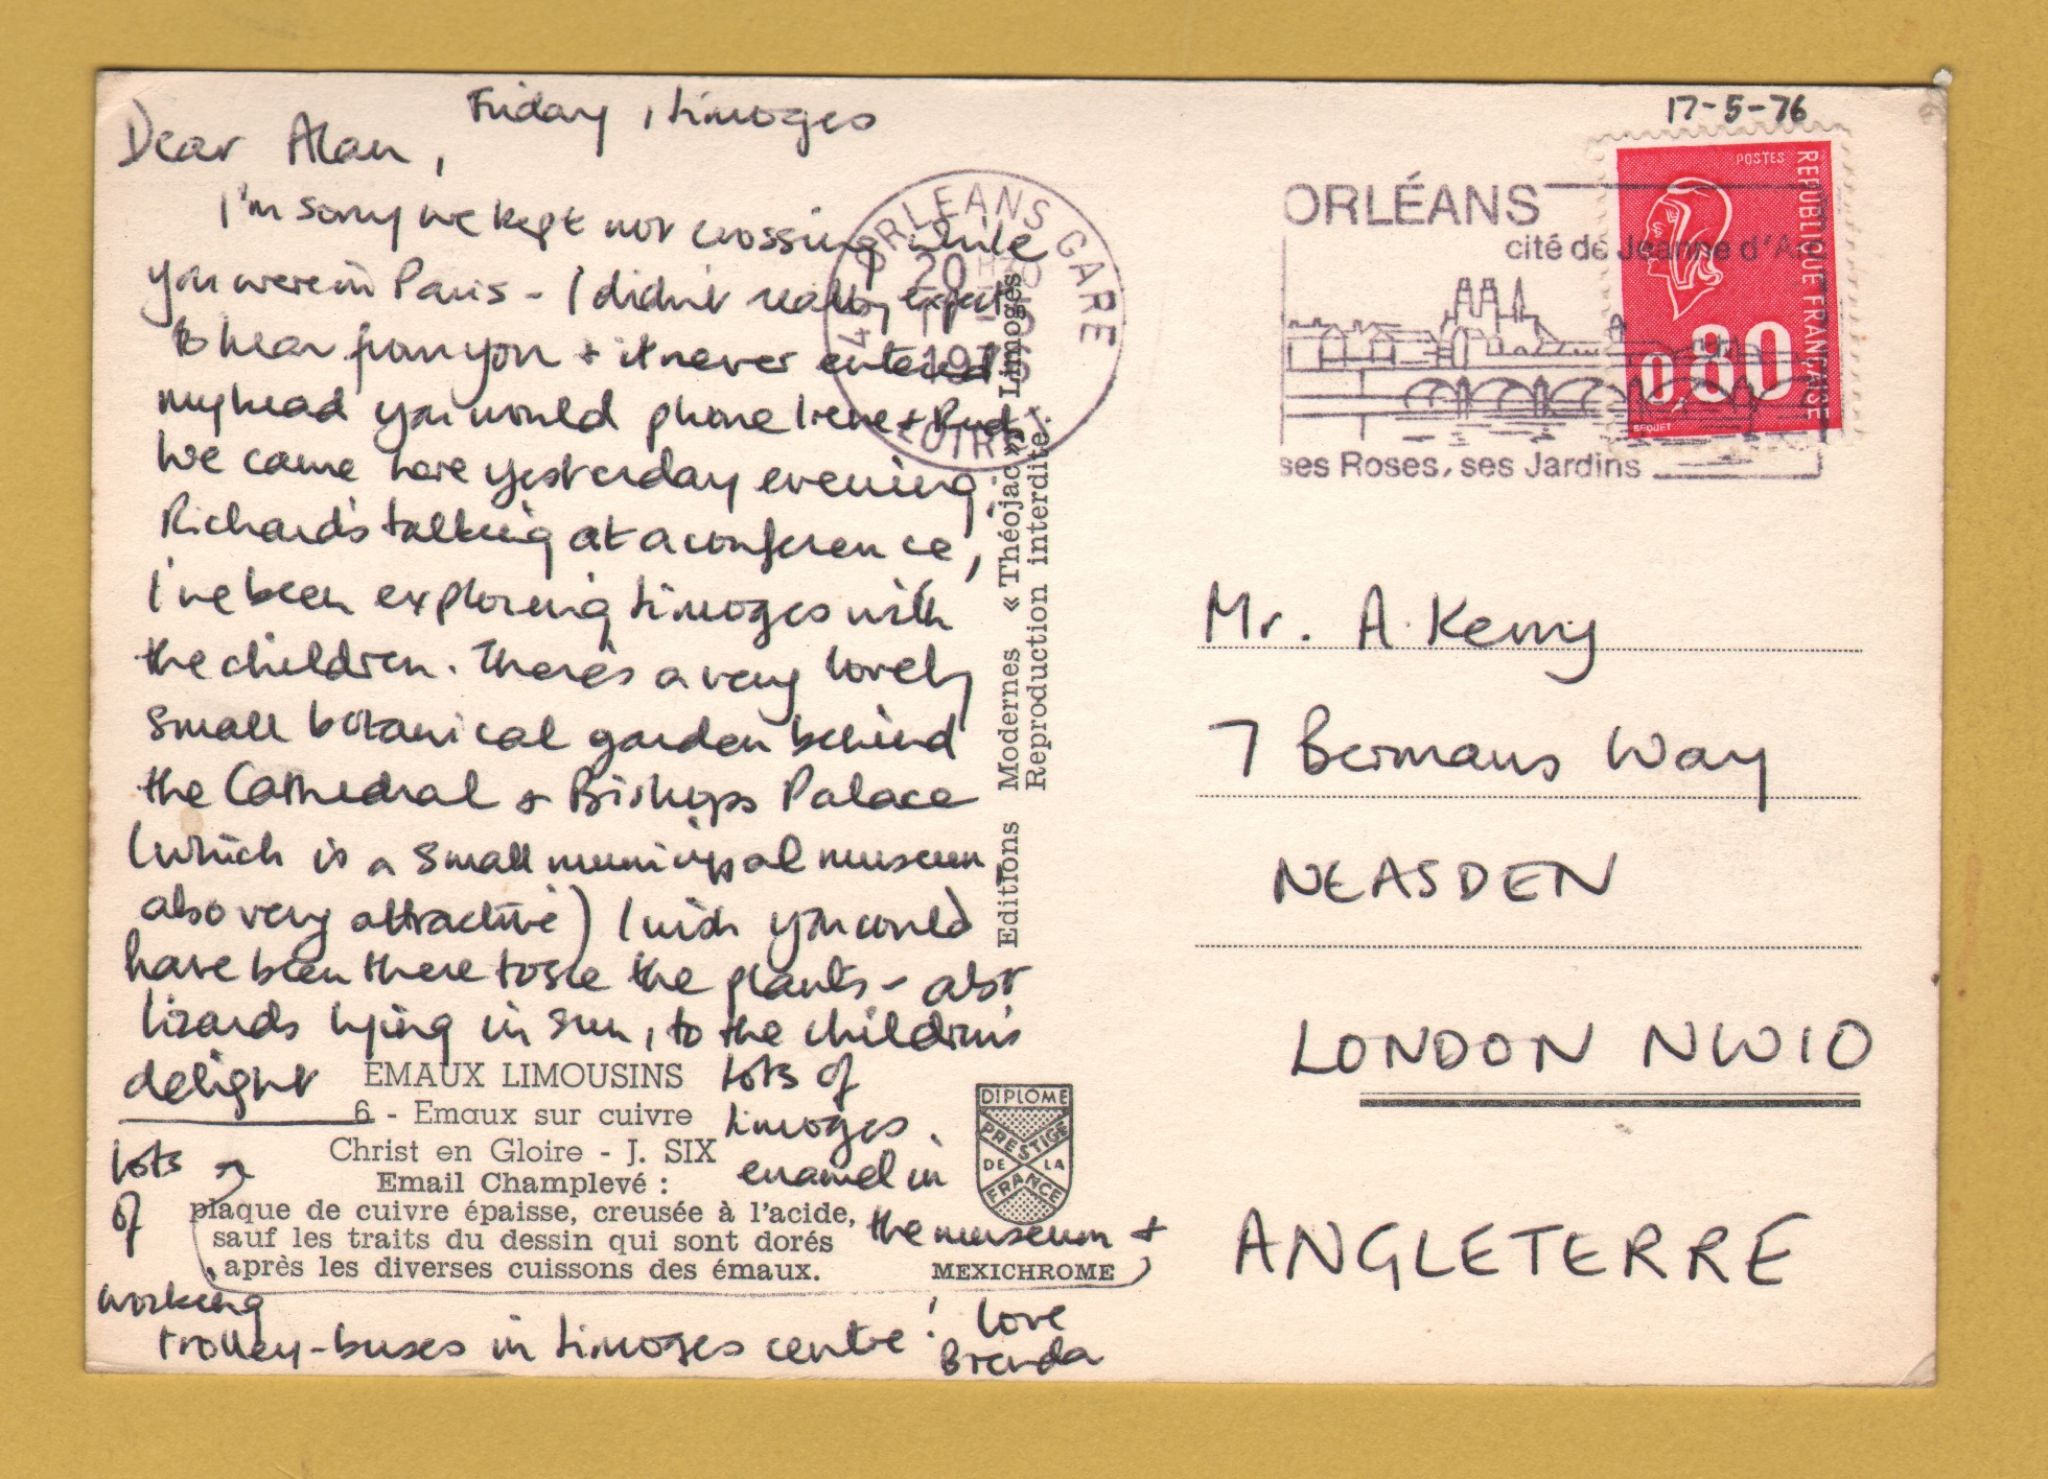 Friday, Limoges
Dear Alan,
I'm sorry we kept not crossing while
you were in Paris - I didn't really expect
to hear from you + it never entered
my head you would phone Irene + Rud.
We came here yesterday evening.
Richard's talking at a conference,
I've been exploring Limoges with
the children. There's a very lovely
small botanical garden behind
the Cathedral & Bishops Palace
(which is a small municipal museum
also very attractive) I wish you could
have been there to see the plants - also
lizards lying in sun, to the children's
delight
Lots of
Limoges
enamel in
the museum +
lots
of
working
trolley-buses in Limoges centre! love
Brenda
EMAUX LIMOUSINS
6 - Emaux sur cuivre
Christ en Gloire - J. SIX
Email Champlevé :
plaque de cuivre épaisse, creusée à l'acide,
sauf les traits du dessin qui sont dorés
après les diverses cuissons des émaux.
DIPLOME
PRESTIGE
DE LA
FRANCE
MEXICHROME
Editions Modernes « Théojac » Limoges
Reproduction interdite.
ORLEANS GARE
LOIRET
17-5-76
ORLÉANS
cité de Jeanne d'Arc
ses Roses, ses Jardins
POSTES
REPUBLIQUE FRANÇAISE
0,80
BEQUET
Mr. A. Kerry
7 Bermans Way
NEASDEN
LONDON NW10
ANGLETERRE